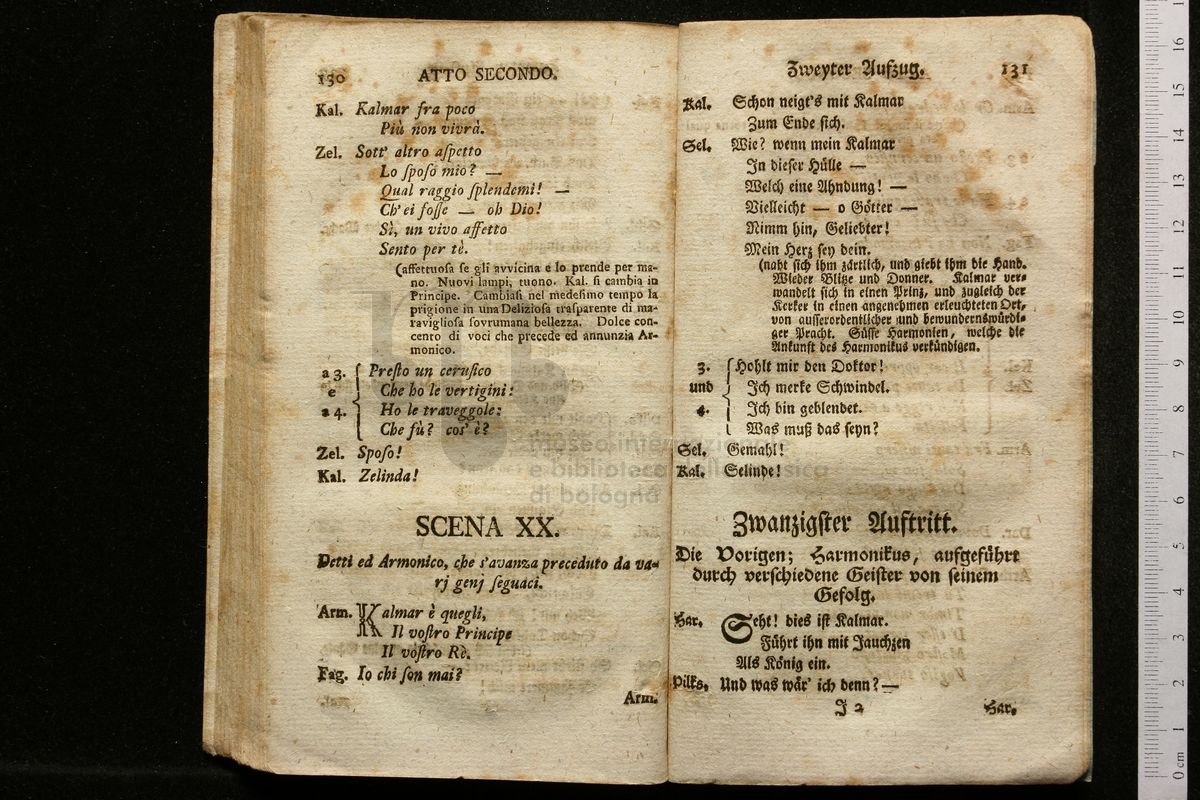 130 ATTO SECONDO.
Kal. Kalmar fra poco
Più non vivrà.
Zel. Sott' altro aſpetto
Lo ſpoſo mio? —
Qual raggio ſplendemi! —
Ch' ei foſſe — oh Dio!
Sì, un vivo affetto
Sento per tè.
(affettuoſa ſe gli avvicina e lo prende per ma-
no. Nuovi lampi, tuono. Kal. ſi cambia in
Principe. Cambiaſi nel medeſimo tempo la
prigione in una Delizioſa traſparente di ma-
raviglioſa ſovrumana bellezza. Dolce con-
cento di voci che precede ed annunzia Ar-
monico.
a 3. Preſto un ceruſico
e Che ho le vertigini:
a 4. Ho le traveggole:
Che fù? cos' è?
Zel. Spoſo!
Kal. Zelinda!
SCENA XX.
Detti ed Armonico, che s'avanza preceduto da va-
rj genj ſeguaci.
Arm. Kalmar è quegli,
Il voſtro Principe
Il voſtro Rè.
Fag. Io chi ſon mai?
Arm.
Zweyter Aufzug. 131
Kal. Schon neigt's mit Kalmar
Zum Ende ſich.
Sel. Wie? wenn mein Kalmar
In dieſer Hülle —
Welch eine Ahndung! —
Vielleicht — o Götter —
Nimm hin, Geliebter!
Mein Herz ſey dein.
(naht ſich ihm zärtlich, und giebt ihm die Hand.
Wieder Blitze und Donner. Kalmar ver-
wandelt ſich in einen Prinz, und zugleich der
Kerker in einen angenehmen erleuchteten Ort,
von auſſerordentlicher und bewundernswürdi-
ger Pracht. Süſſe Harmonien, welche die
Ankunft des Harmonikus verkündigen.
3. Hohlt mir den Doktor!
und Ich merke Schwindel.
4. Ich bin geblendet.
Was muß das ſeyn?
Sel. Gemahl!
Kal. Selinde!
Zwanzigſter Auftritt.
Die Vorigen; Harmonikus, aufgeführt
durch verſchiedene Geiſter von ſeinem
Gefolg.
Har. Seht! dies iſt Kalmar.
Führt ihn mit Jauchzen
Als König ein.
Pilks. Und was wär' ich denn? —
J 2 Har.
museo internazionale
e biblioteca della musica
di bologna